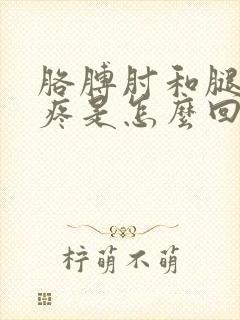 胳膊肘和腿
疼是怎麼回
柠萌不萌